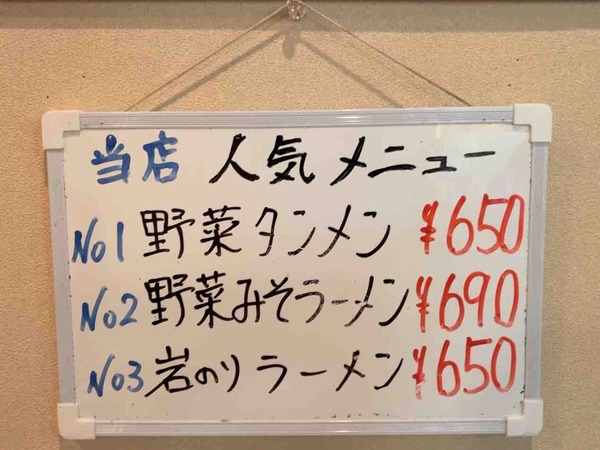 当店 人気メニュー
No1 野菜タンメン ¥650
No2 野菜みそラーメン ¥690
No3 岩のりラーメン ¥650